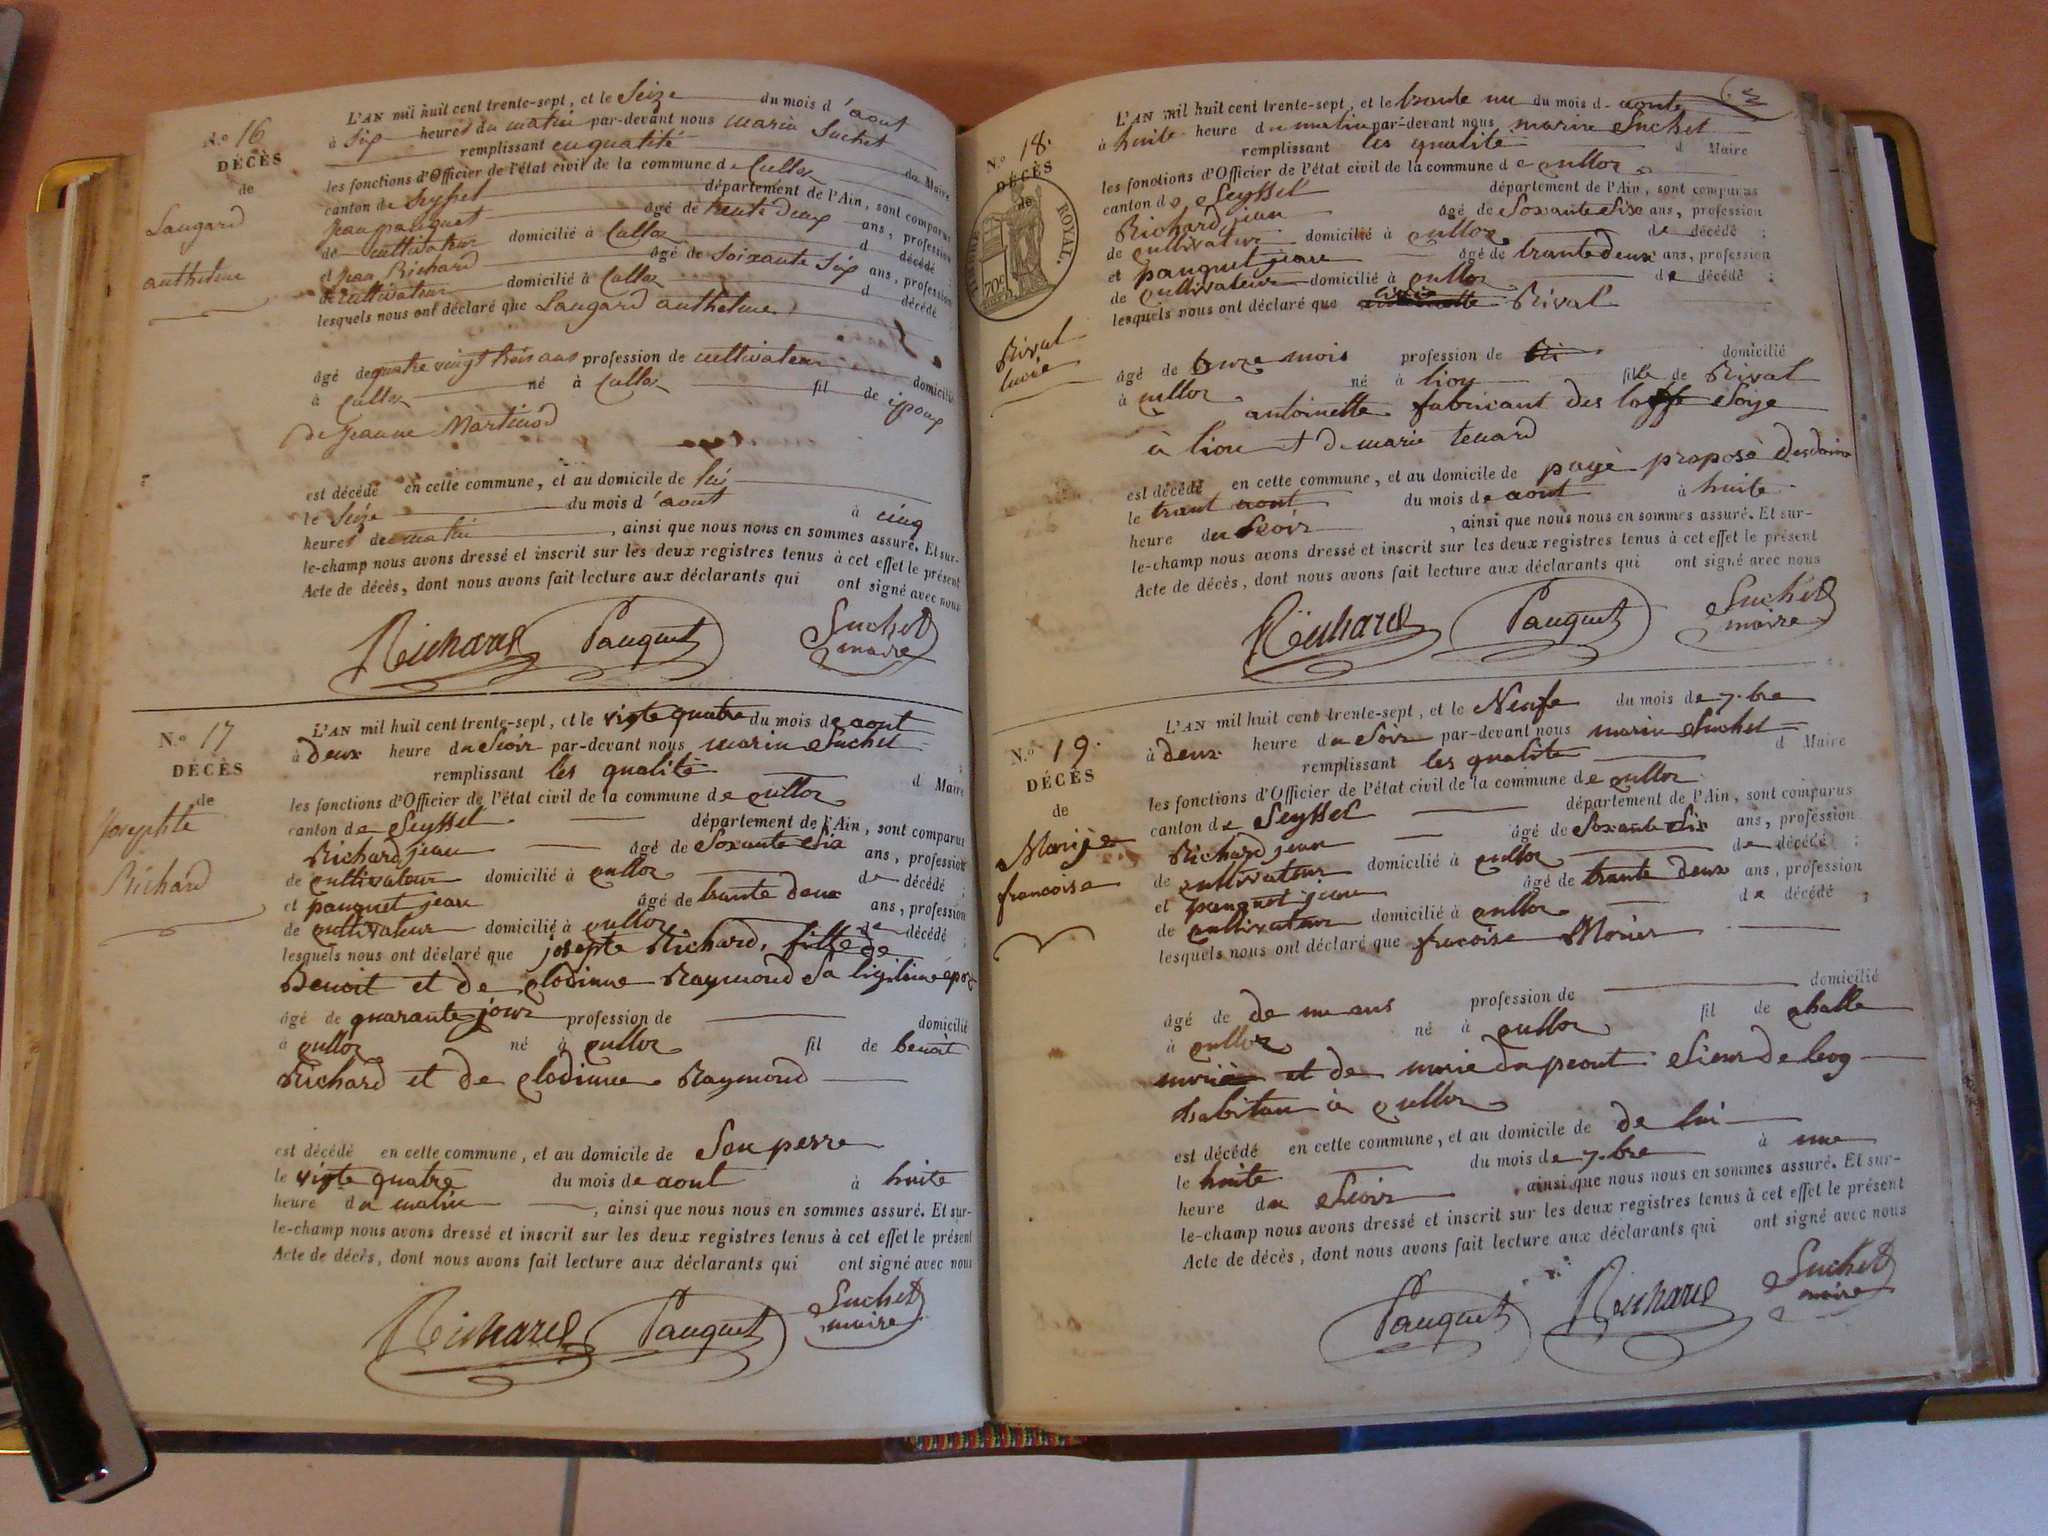 N.º 16
DÉCÈS
de
Laugard
anthelme
L'AN mil huit cent trente-sept, et le Seize du mois d'aout
à Six heures du matin par-devant nous marin Suchet
remplissant en qualité du Maire
les fonctions d'Officier de l'état civil de la commune de Culloz
canton de Seyssel département de l'Ain, sont comparus
Jean pauquet âgé de trente Deux ans, profession
de cultivateur domicilié à Culloz d décédé ;
et Jean Richard âgé de Soixante Six ans, profession
de cultivateur domicilié à Culloz d décédé ;
lesquels nous ont déclaré que Laugard anthelme
âgé de quatre vingt trois ans profession de cultivateur domicilié
à Culloz né à Culloz fil de époux
de Jeanne Martinod
est décédé en cette commune, et au domicile de lui
le Seize du mois d'aout à cinq
heures de matin, ainsi que nous nous en sommes assuré. Et sur-
le-champ nous avons dressé et inscrit sur les deux registres tenus à cet effet le présent
Acte de décès, dont nous avons fait lecture aux déclarants qui ont signé avec nous
Richard Pauquet Suchet
maire
N.º 17
DÉCÈS
de
Josephte
Richard
L'AN mil huit cent trente-sept, et le vigte quatre du mois de aout
à deux heure du Soir par-devant nous marin Suchet
remplissant les qualité d Maire
les fonctions d'Officier de l'état civil de la commune de culloz
canton de Seyssel département de l'Ain, sont comparus
Richard jean âgé de Soxante Six ans, profession
de cultivateur domicilié à culloz de décédé ;
et pauquet jean âgé de trante deux ans, profession
de cultivateur domicilié à culloz de décédé ;
lesquels nous ont déclaré que josepte Richard, fille de
Benoit et de clodinne Raymond Sa ligitime
âgé de quarante jour profession de domicilié
à culloz né à culloz fil de benoit
Richard et de clodinne Raymond
est décédé en cette commune, et au domicile de Son perre
le vigte quatre du mois de aout à huite
heure du matin, ainsi que nous nous en sommes assuré. Et sur-
le-champ nous avons dressé et inscrit sur les deux registres tenus à cet effet le présent
Acte de décès, dont nous avons fait lecture aux déclarants qui ont signé avec nous
Richard Pauquet Suchet
maire
N.º 18.
DÉCÈS
de
TIMBRE ROYAL.
70c
Rival
lucie
L'AN mil huit cent trente-sept, et le trante un du mois d aoute
à huite heure du matin par-devant nous marin Suchet
remplissant les qualite d Maire
les fonctions d'Officier de l'état civil de la commune de culloz
canton de Seyssel département de l'Ain, sont comparus
Richard jean âgé de Soxante Six ans, profession
de cultivateur domicilié à culloz de décédé ;
et pauquet jean âgé de trante deux ans, profession
de cultivateur domicilié à culloz de décédé ;
lesquels nous ont déclaré que lucie Rival
âgé de onze mois profession de domicilié
à culloz né à lion fille de Rival
antoinette fabricant des Soye
à lion et de marie tenard
est décédé en cette commune, et au domicile de pagè proposé
le trant aout du mois de aout à huite
heure du Seoir, ainsi que nous nous en sommes assuré. Et sur-
le-champ nous avons dressé et inscrit sur les deux registres tenus à cet effet le présent
Acte de décès, dont nous avons fait lecture aux déclarants qui ont signé avec nous
Richard Pauquet Suchet
maire
N.º 19.
DÉCÈS
de
francoise
L'AN mil huit cent trente-sept, et le Neufe du mois de 7.bre
à deux heure du Soir par-devant nous marin Suchet
remplissant les qualite d Maire
les fonctions d'Officier de l'état civil de la commune de culloz
canton de Seyssel département de l'Ain, sont comparus
Richard jean âgé de Soxante Six ans, profession
de cultivateur domicilié à culloz de décédé ;
et pauquet jean âgé de trante deux ans, profession
de cultivateur domicilié à culloz de décédé ;
lesquels nous ont déclaré que
âgé de de un ans profession de domicilié
à culloz né à culloz fil de
et de marie
habitan à culloz
est décédé en cette commune, et au domicile de de lui
le huite du mois de 7.bre à une
heure du Seoir, ainsi que nous nous en sommes assuré. Et sur-
le-champ nous avons dressé et inscrit sur les deux registres tenus à cet effet le présent
Acte de décès, dont nous avons fait lecture aux déclarants qui ont signé avec nous
Pauquet Richard Suchet
maire